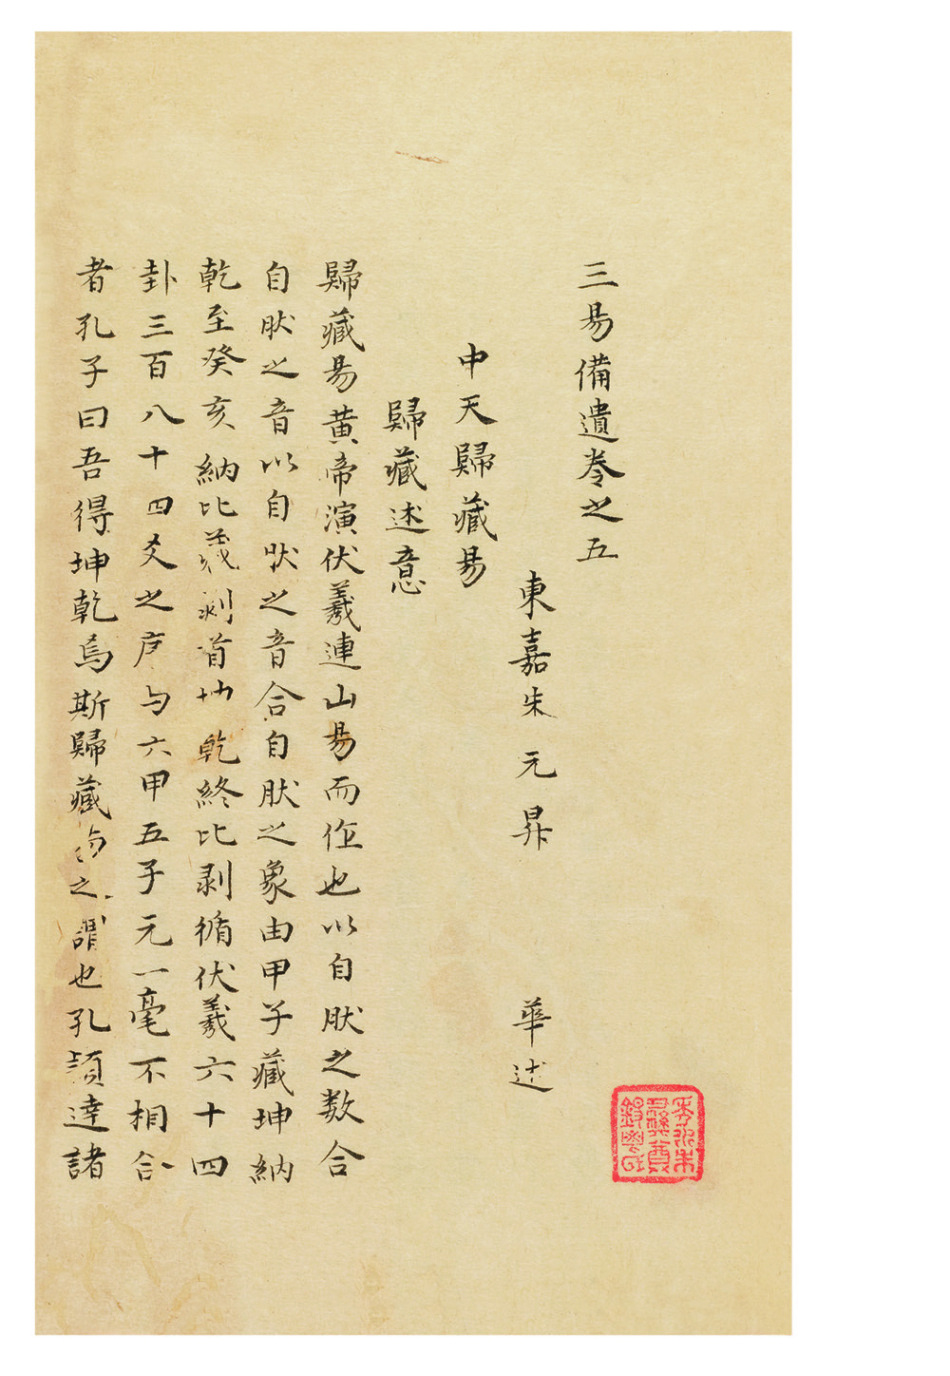 三易備遺卷之五
東嘉朱元昇 華述
中天歸藏易
歸藏述意
歸藏易黃帝演伏羲連山易而作也以自肰之数合
自肰之音以自肰之音合自肰之象由甲子藏坤納
乾至癸亥納比藏剥首坤乾終比剥循伏羲六十四
卦三百八十四爻之序与六甲五子元一毫不相合
者孔子曰吾得坤乾焉斯歸藏之謂也孔穎達諸